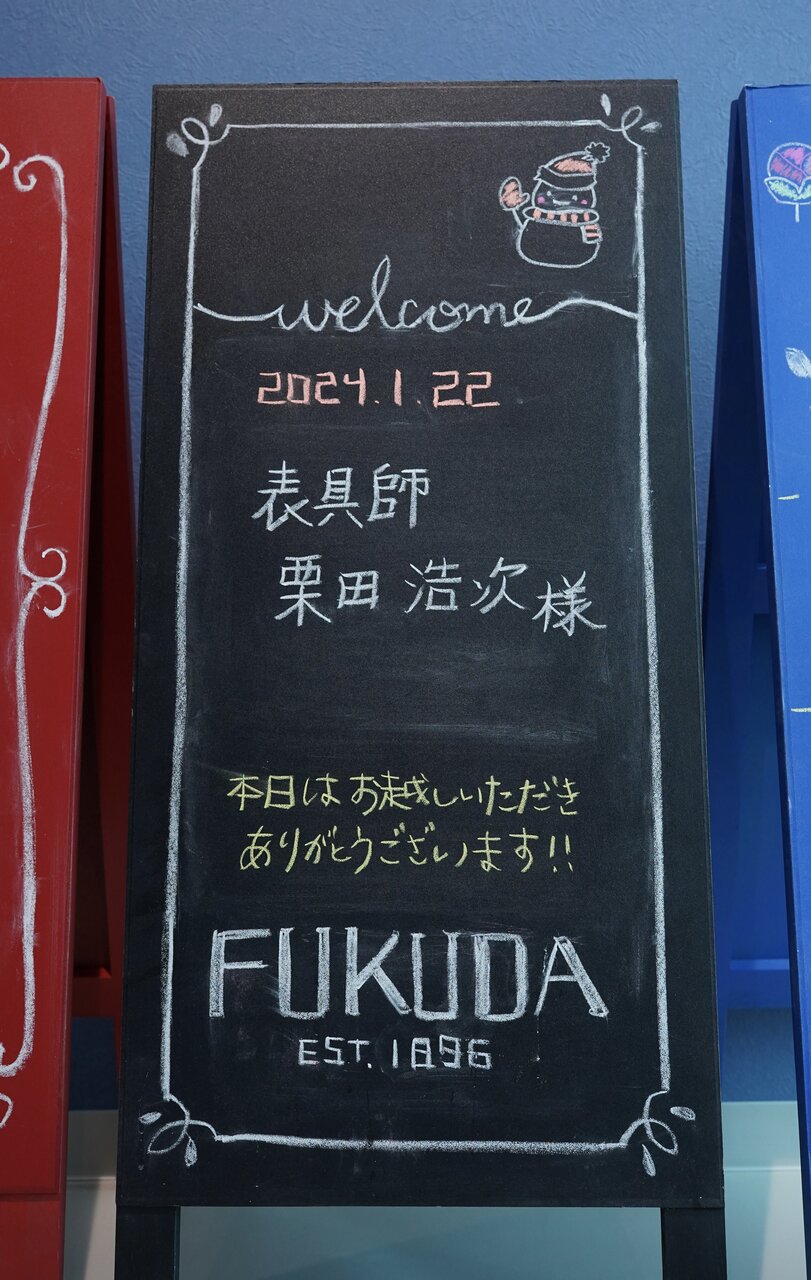 welcome
2024.1.22
表具師
栗田 浩次様
本日はお越しいただき
ありがとうございます!!
FUKUDA
EST. 1896